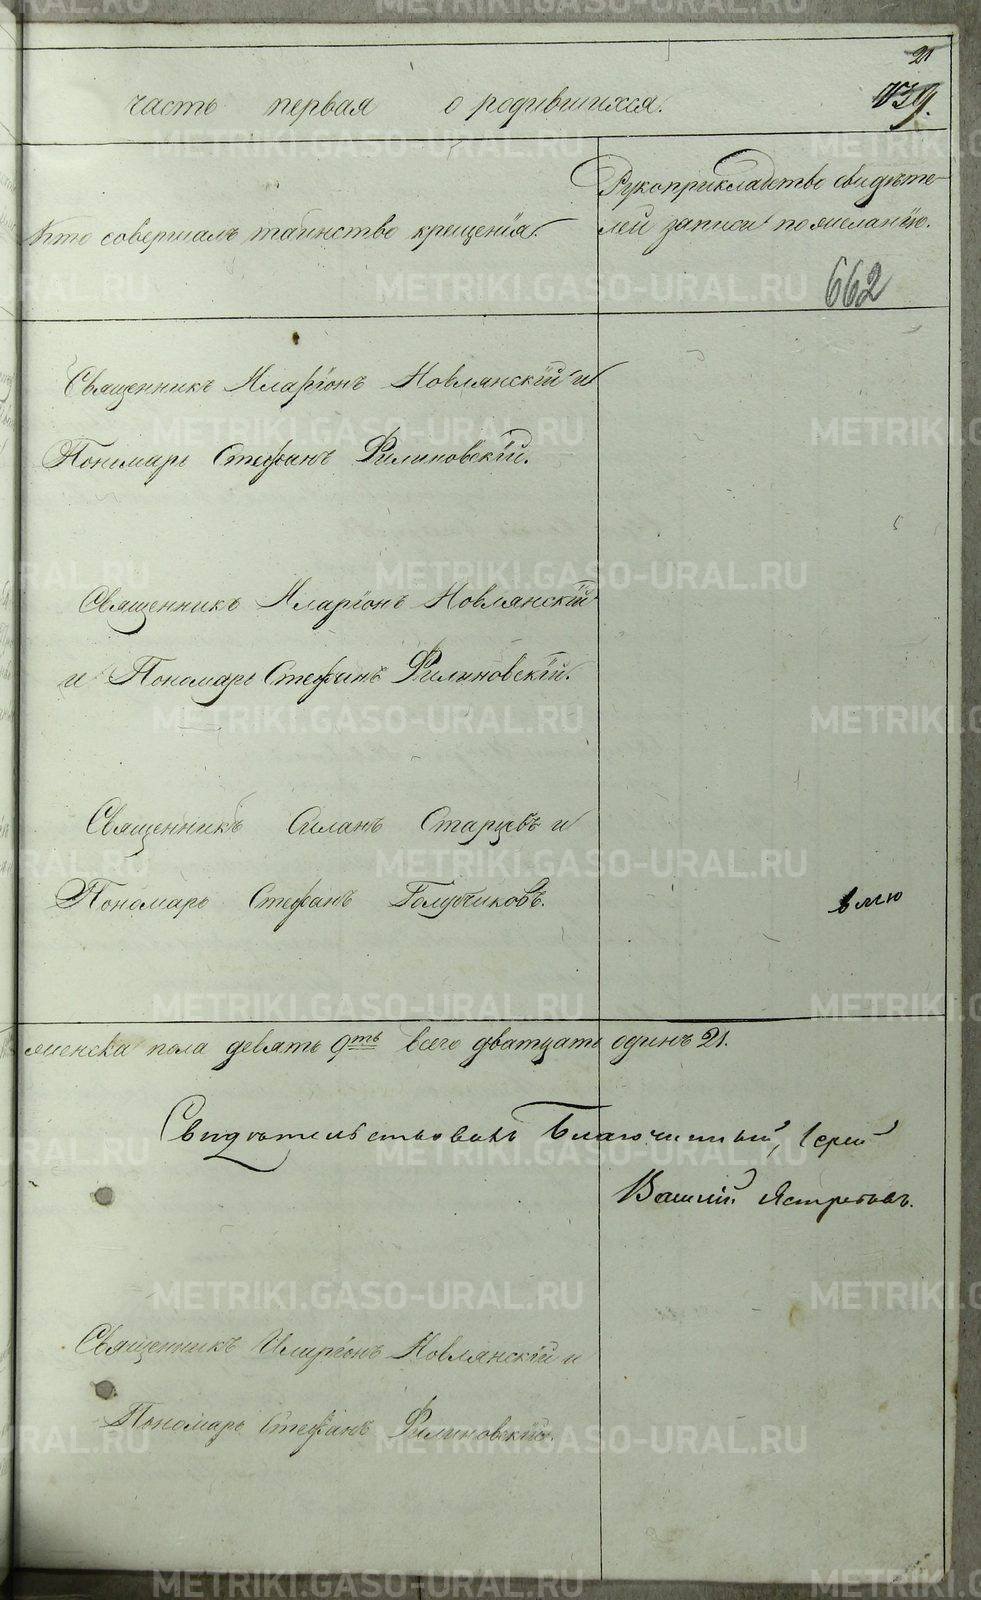 21
139.
часть первая о родившихся.
Кто совершалъ таинство крещенія.
Рукоприкладство свидѣте-
лей записи по желанію.
662
Священникъ Иларіонъ Новлянскій и
Пономарь Стефанъ Филиновскій.
Священникъ Иларіонъ Новлянскій
и Пономарь Стефанъ Филиновскій.
Священникъ Силанъ Старцевъ и
Пономарь Стефанъ Голубчиковъ.
женска пола девять 9ть всего дватцать одинъ 21.
Свидѣтельствовалъ Благочинный, Іерей
Василій Ястребовъ.
Священникъ Иларіонъ Новлянскій и
Пономарь Стефанъ Филиновскій.
METRIKI.GASO-URAL.RU